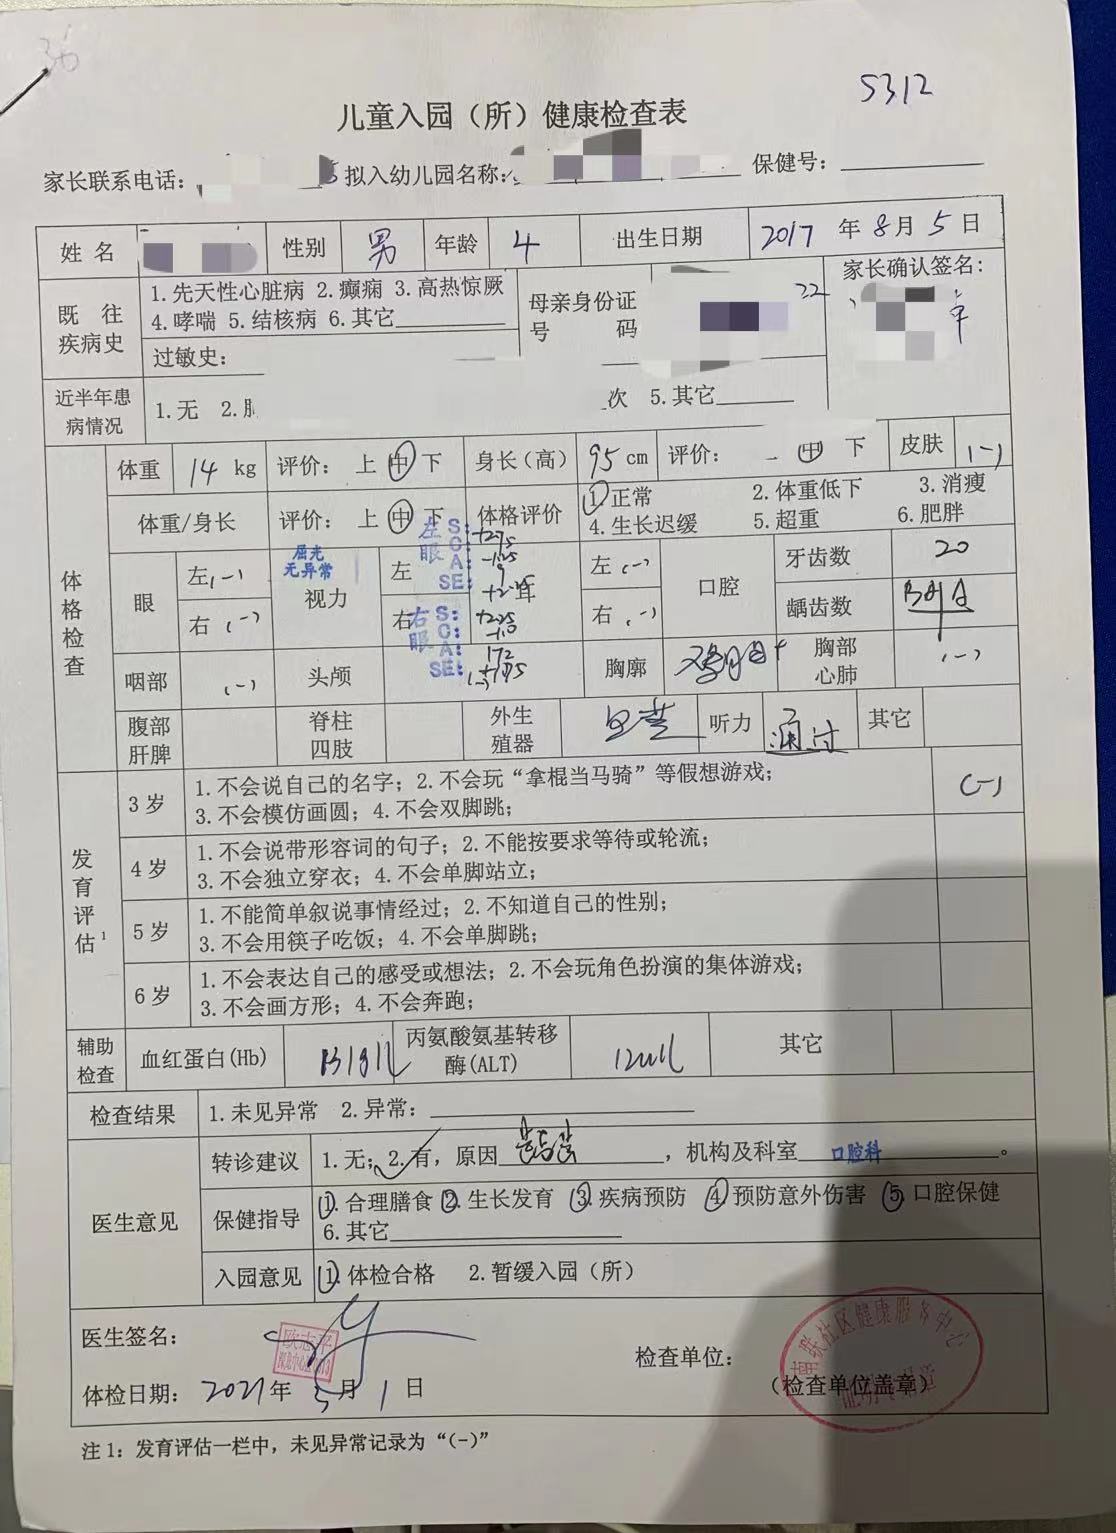 36
5312
儿童入园（所）健康检查表
家长联系电话： 拟入幼儿园名称： 保健号：
姓 名 性别 男 年龄 4 出生日期 2017 年 8 月 5 日
既 往 疾病史 1.先天性心脏病 2.癫痫 3.高热惊厥
4.哮喘 5.结核病 6.其它
母亲身份证号 码 22
家长确认签名：
过敏史：
近半年患病情况 1.无 2. 次 5.其它
体格检查
体重 14 kg 评价： 上 中 下 身长(高) 95 cm 评价： 中 下 皮肤 (-)
体重/身长 评价： 上 中 下 体格评价 1.正常 2.体重低下 3.消瘦
4.生长迟缓 5.超重 6.肥胖
眼 左 (-) 屈光 无异常 视力 左 左眼 S: C: A: SE: 耳 左 (-) 口腔 牙齿数 20
右 (-) 右 右眼 S: C: A: SE: 右 (-) 龋齿数
172
咽部 (-) 头颅 (-) 胸廓 胸部心肺 (-)
腹部肝脾 脊柱四肢 外生殖器 听力 通过 其它
发育评估¹
3岁 1.不会说自己的名字；2.不会玩“拿棍当马骑”等假想游戏； (-)
3.不会模仿画圆；4.不会双脚跳；
4岁 1.不会说带形容词的句子；2.不能按要求等待或轮流；
3.不会独立穿衣；4.不会单脚站立；
5岁 1.不能简单叙说事情经过；2.不知道自己的性别；
3.不会用筷子吃饭；4.不会单脚跳；
6岁 1.不会表达自己的感受或想法；2.不会玩角色扮演的集体游戏；
3.不会画方形；4.不会奔跑；
辅助检查 血红蛋白(Hb) 丙氨酸氨基转移酶(ALT) 12u/L 其它
检查结果 1.未见异常 2.异常：
医生意见
转诊建议 1.无；2.有，原因 ，机构及科室 口腔科 。
保健指导 1.合理膳食 2.生长发育 3.疾病预防 4.预防意外伤害 5.口腔保健
6.其它
入园意见 1.体检合格 2.暂缓入园（所）
医生签名：
检查单位：
联社区健康服务中心
（检查单位盖章）
体检日期： 2021 年 3 月 1 日
注1：发育评估一栏中，未见异常记录为“(-)”